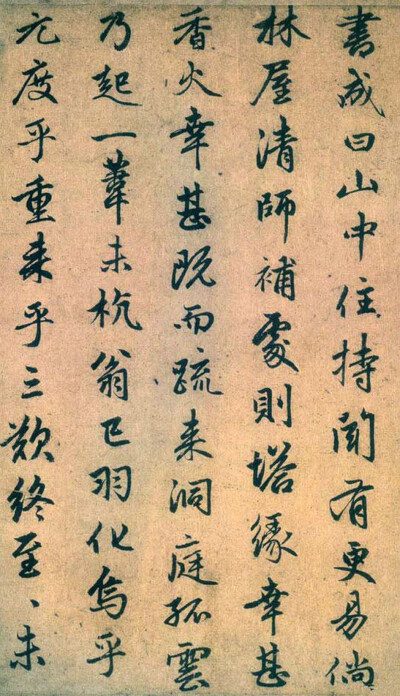 書成曰山中住持聞有更易倘
林屋清師補處則塔緣幸甚
香火幸甚既而疏来洞庭孤雲
乃起一葦未杭翁已羽化烏乎
元度乎重来乎三歎終至、未